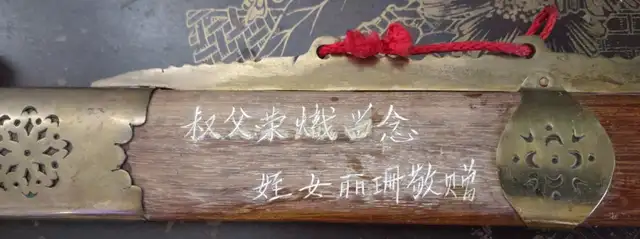 叔父荣炽留念
姪女丽珊敬赠